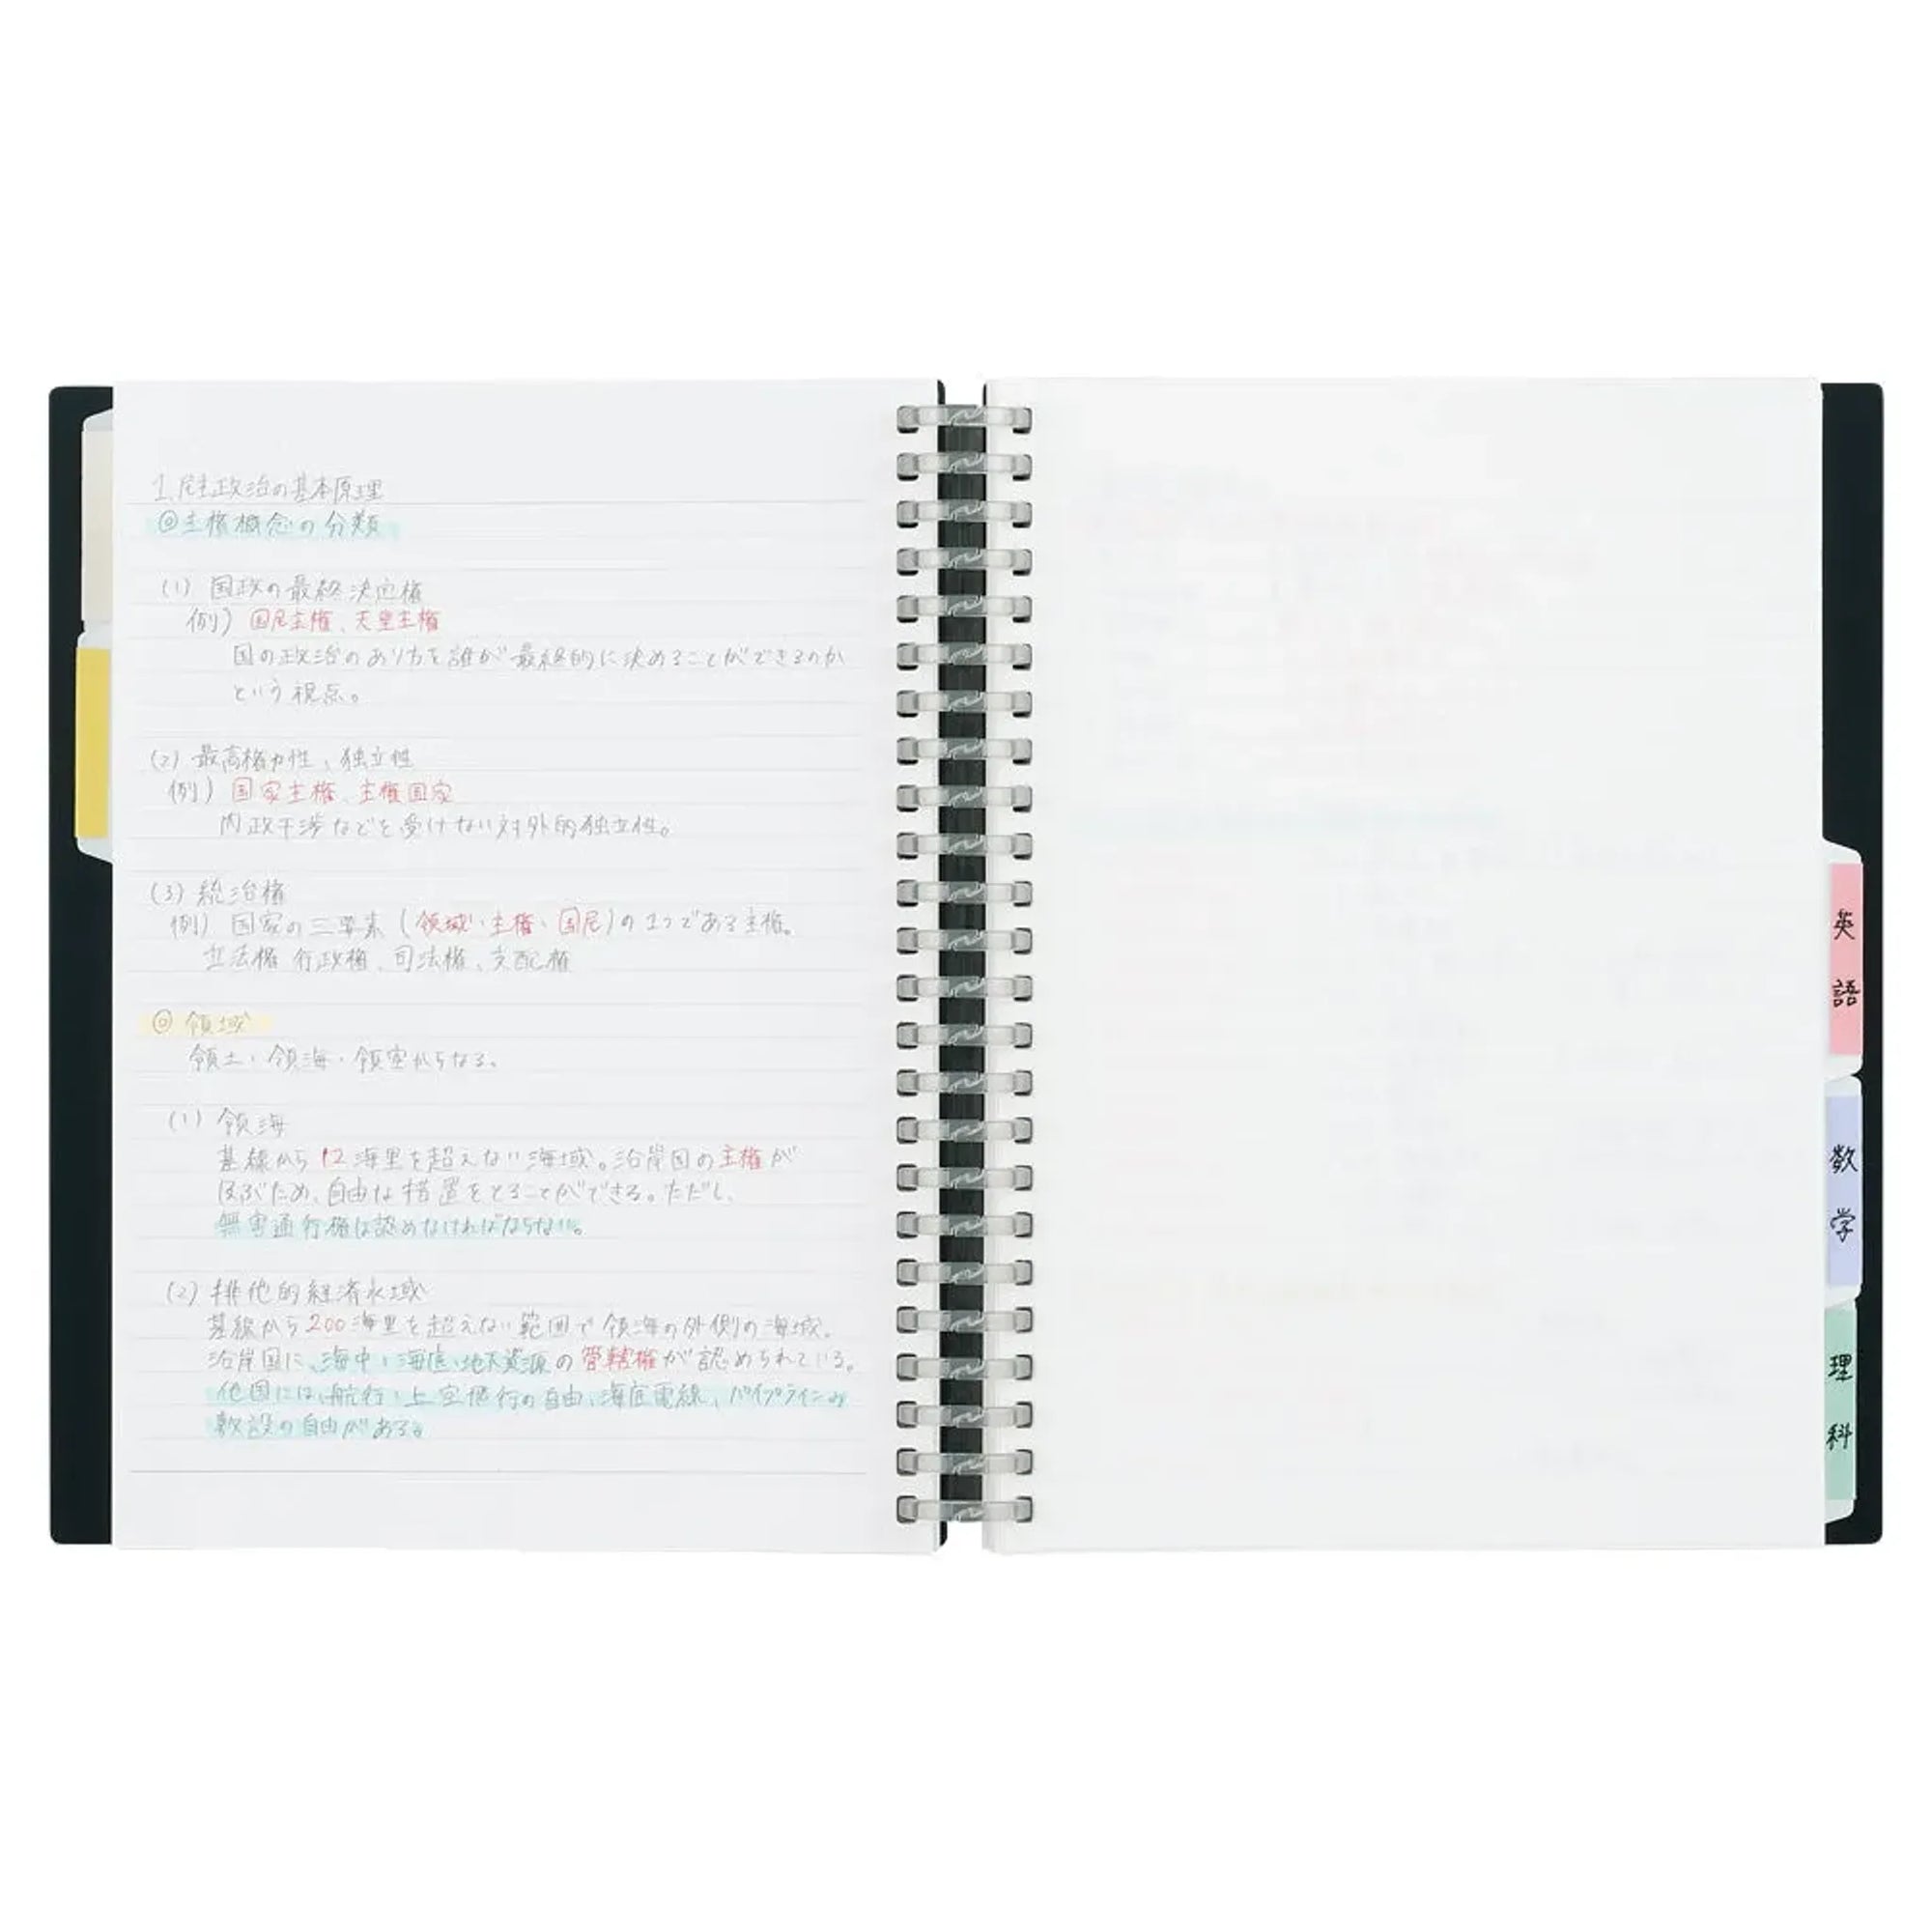 1.民主政治の基本原理
◎主権概念の分類
(1) 国政の最終決定権
例) 国民主権、天皇主権
国の政治のあり方を誰が最終的に決めることができるのか
という視点。
(2) 最高権力性、独立性
例) 国家主権、主権国家
内政干渉などを受けない対外的独立性。
(3) 統治権
例) 国家の三要素 (領域・主権・国民)の1つである主権。
立法権 行政権、司法権、支配権
◎ 領域
領土・領海・領空からなる。
(1) 領海
基線から12海里を超えない海域。沿岸国の主権が
及ぶため、自由な措置をとることができる。ただし、
無害通行権は認めなければならない。
(2) 排他的経済水域
基線から200海里を超えない範囲で領海の外側の海域。
沿岸国に、海中・海底・地下資源の管轄権が認められている。
他国には、航行・上空飛行の自由、海底電線、パイプラインの
敷設の自由がある。
英語
数学
理科